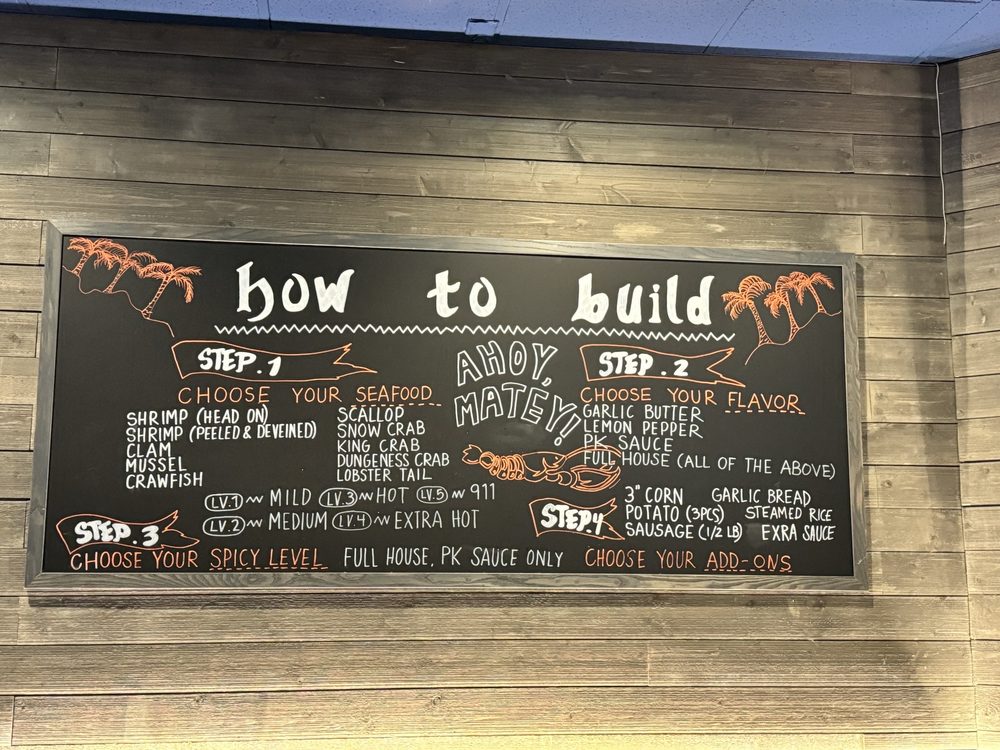 how to build
STEP.1
CHOOSE YOUR SEAFOOD
SHRIMP (HEAD ON)
SHRIMP (PEELED & DEVEINED)
CLAM
MUSSEL
CRAWFISH
SCALLOP
SNOW CRAB
KING CRAB
DUNGENESS CRAB
LOBSTER TAIL
AHOY,
MATEY!!
STEP.2
CHOOSE YOUR FLAVOR
GARLIC BUTTER
LEMON PEPPER
PK SAUCE
FULL HOUSE (ALL OF THE ABOVE)
STEP.3
CHOOSE YOUR SPICY LEVEL
LV.1 ~ MILD LV.3 ~ HOT LV.5 ~ 911
LV.2 ~ MEDIUM LV.4 ~ EXTRA HOT
FULL HOUSE, PK SAUCE ONLY
STEP.4
3" CORN GARLIC BREAD
POTATO (3PCS) STEAMED RICE
SAUSAGE (1/2 LB) EXRA SAUCE
CHOOSE YOUR ADD-ONS